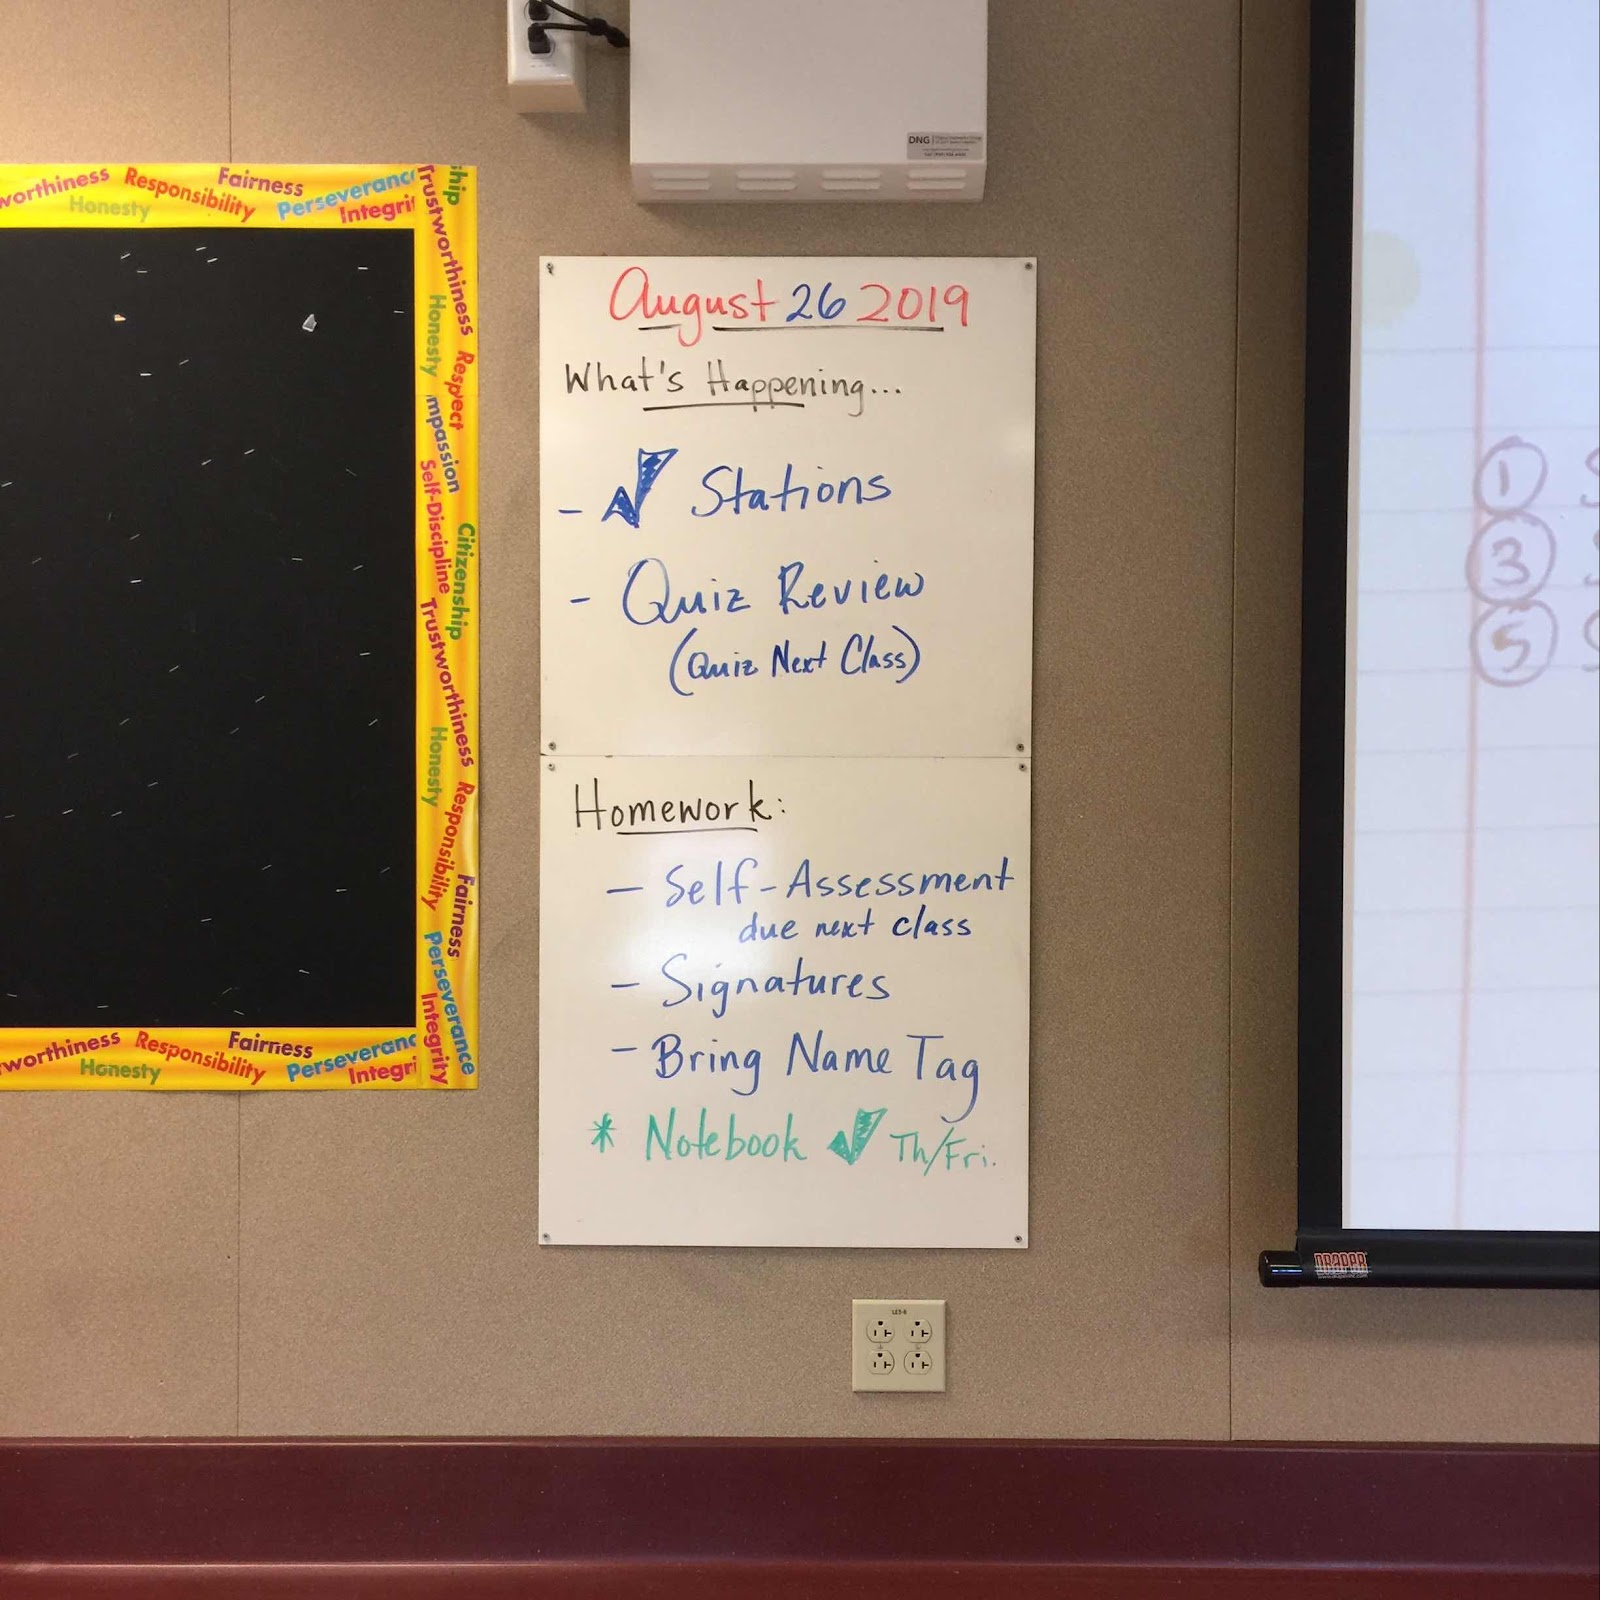 DNG
worthiness Responsibility Fairness Perseveranc
Honesty Integrit
hip
Trustworthiness
Honesty
Respect
mpassion
Self-Discipline
Citizenship
Trustworthiness
Honesty
Responsibility
Fairness
Perseverance
Integrity
worthiness Responsibility Fairness Perseveranc
Honesty Integri
August 26 2019
What's Happening...
- ✓ Stations
- Quiz Review
(Quiz Next Class)
Homework:
- Self-Assessment
due next class
- Signatures
- Bring Name Tag
* Notebook ✓ Th/Fri.
1 S
3 S
5
DRAPER
www.draperinc.com